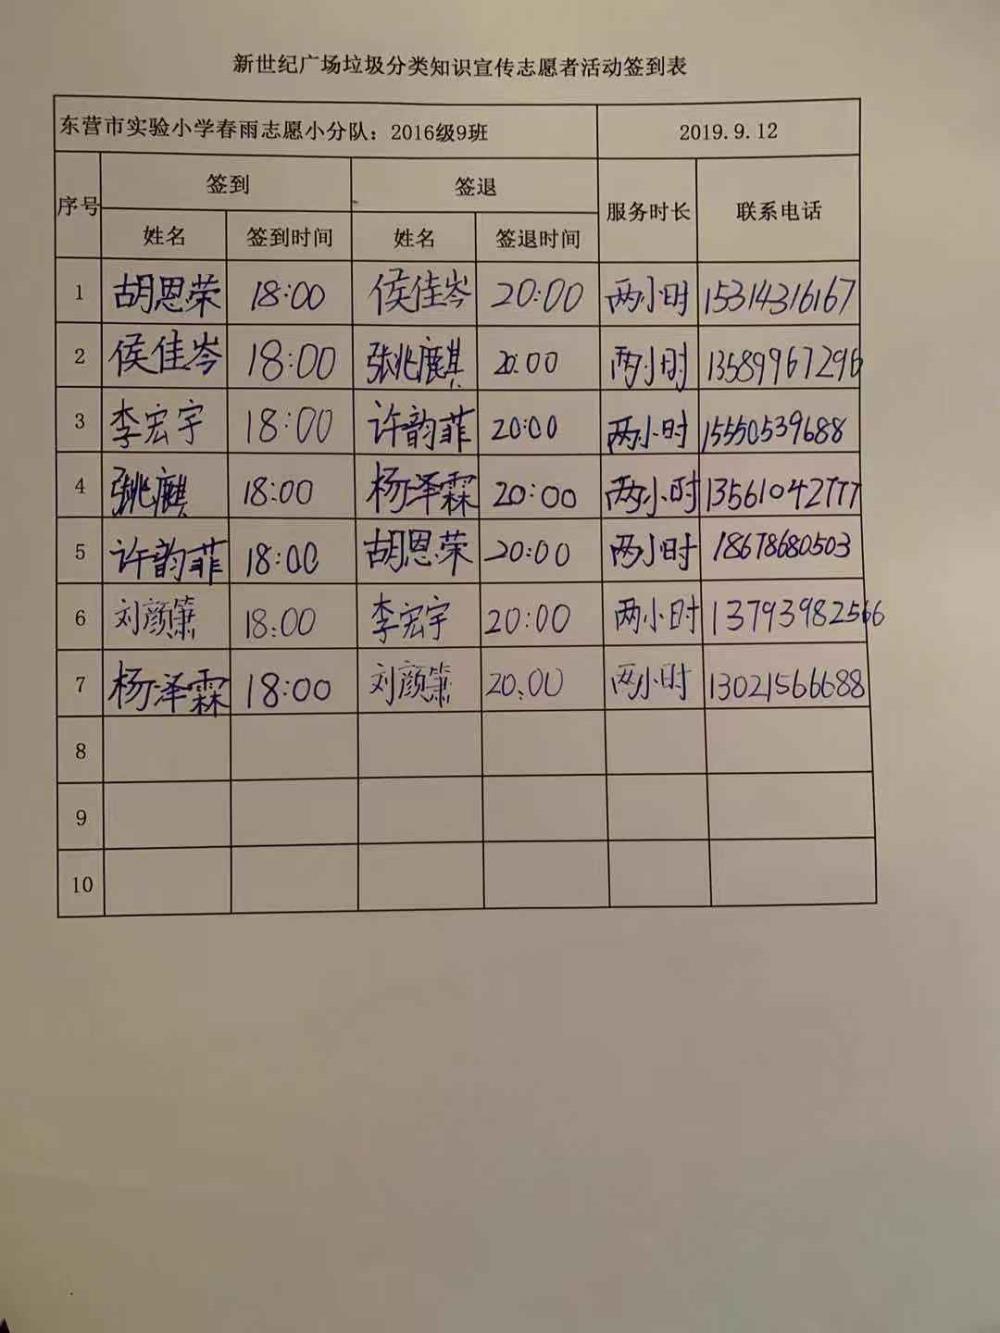 新世纪广场垃圾分类知识宣传志愿者活动签到表
东营市实验小学春雨志愿小分队：2016级9班 2019.9.12
序号 签到 签退 服务时长 联系电话
姓名 签到时间 姓名 签退时间
1 胡恩荣 18:00 侯佳岑 20:00 两小时 15314316167
2 侯佳岑 18:00 张兆麒 20:00 两小时 13589967296
3 李宏宇 18:00 许韵菲 20:00 两小时 15550539688
4 张兆麒 18:00 杨泽霖 20:00 两小时 13561042777
5 许韵菲 18:00 胡恩荣 20:00 两小时 18678680503
6 刘颜箫 18:00 李宏宇 20:00 两小时 13793982566
7 杨泽霖 18:00 刘颜箫 20:00 两小时 13021566688
8
9
10